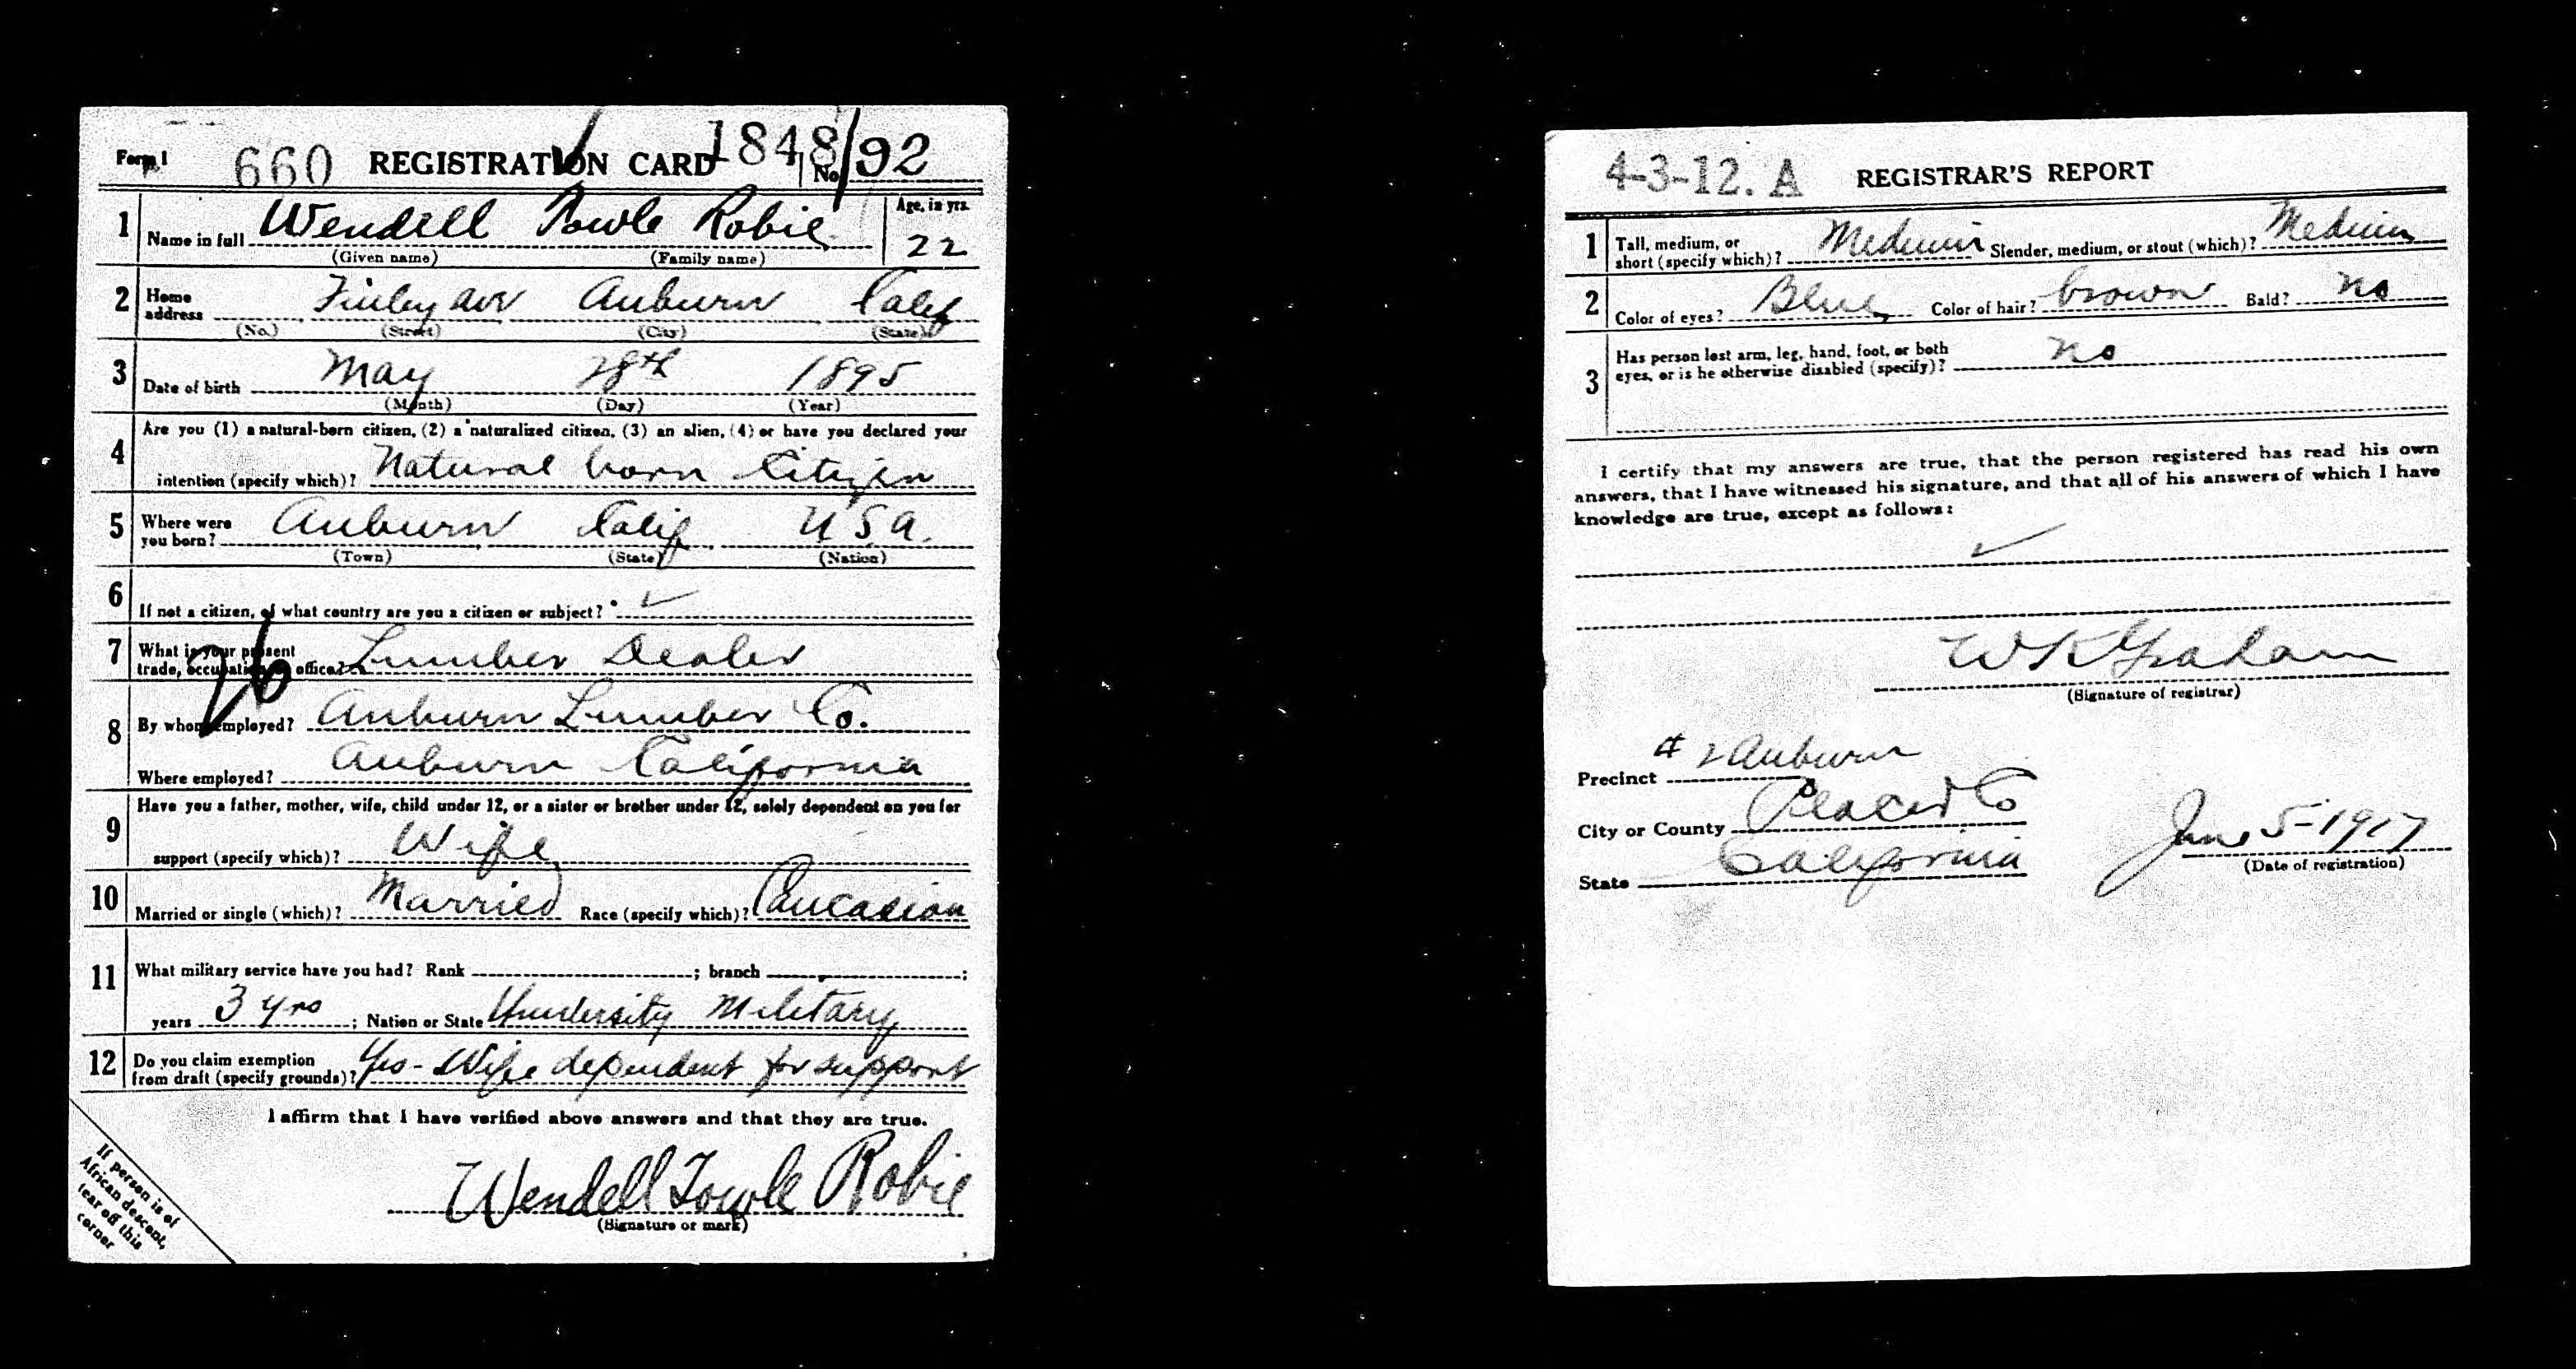 Form 1 660 REGISTRATION CARD 1848 No. 92
1 Name in full Wendell Towle Robie Age, in yrs. 22
(Given name) (Family name)
2 Home address Finley ave Auburn Calif
(No.) (Street) (City) (State)
3 Date of birth May 28th 1895
(Month) (Day) (Year)
4 Are you (1) a natural-born citizen, (2) a naturalized citizen, (3) an alien, (4) or have you declared your
intention (specify which)? Natural born Citizen
5 Where were you born? Auburn Calif USA.
(Town) (State) (Nation)
6 If not a citizen, of what country are you a citizen or subject? ✓
7 What is your present trade, occupation or office? Lumber Dealer
26
8 By whom employed? Auburn Lumber Co.
Where employed? Auburn California
9 Have you a father, mother, wife, child under 12, or a sister or brother under 12, solely dependent on you for
support (specify which)? Wife
10 Married or single (which)? Married Race (specify which)? Caucasian
11 What military service have you had? Rank ; branch ;
years 3 yrs ; Nation or State University Military
12 Do you claim exemption from draft (specify grounds)? Yes - Wife dependent for support
I affirm that I have verified above answers and that they are true.
Wendell Towle Robie
(Signature or mark)
If person is of
African descent,
tear off this
corner
4-3-12. A REGISTRAR'S REPORT
1 Tall, medium, or short (specify which)? Medium Slender, medium, or stout (which)? Medium
2 Color of eyes? Blue Color of hair? brown Bald? No
3 Has person lost arm, leg, hand, foot, or both
eyes, or is he otherwise disabled (specify)? No
I certify that my answers are true, that the person registered has read his own
answers, that I have witnessed his signature, and that all of his answers of which I have
knowledge are true, except as follows:
✓
W K Graham
(Signature of registrar)
Precinct # 2 Auburn
City or County Placer Co
State California
June 5-1917
(Date of registration)